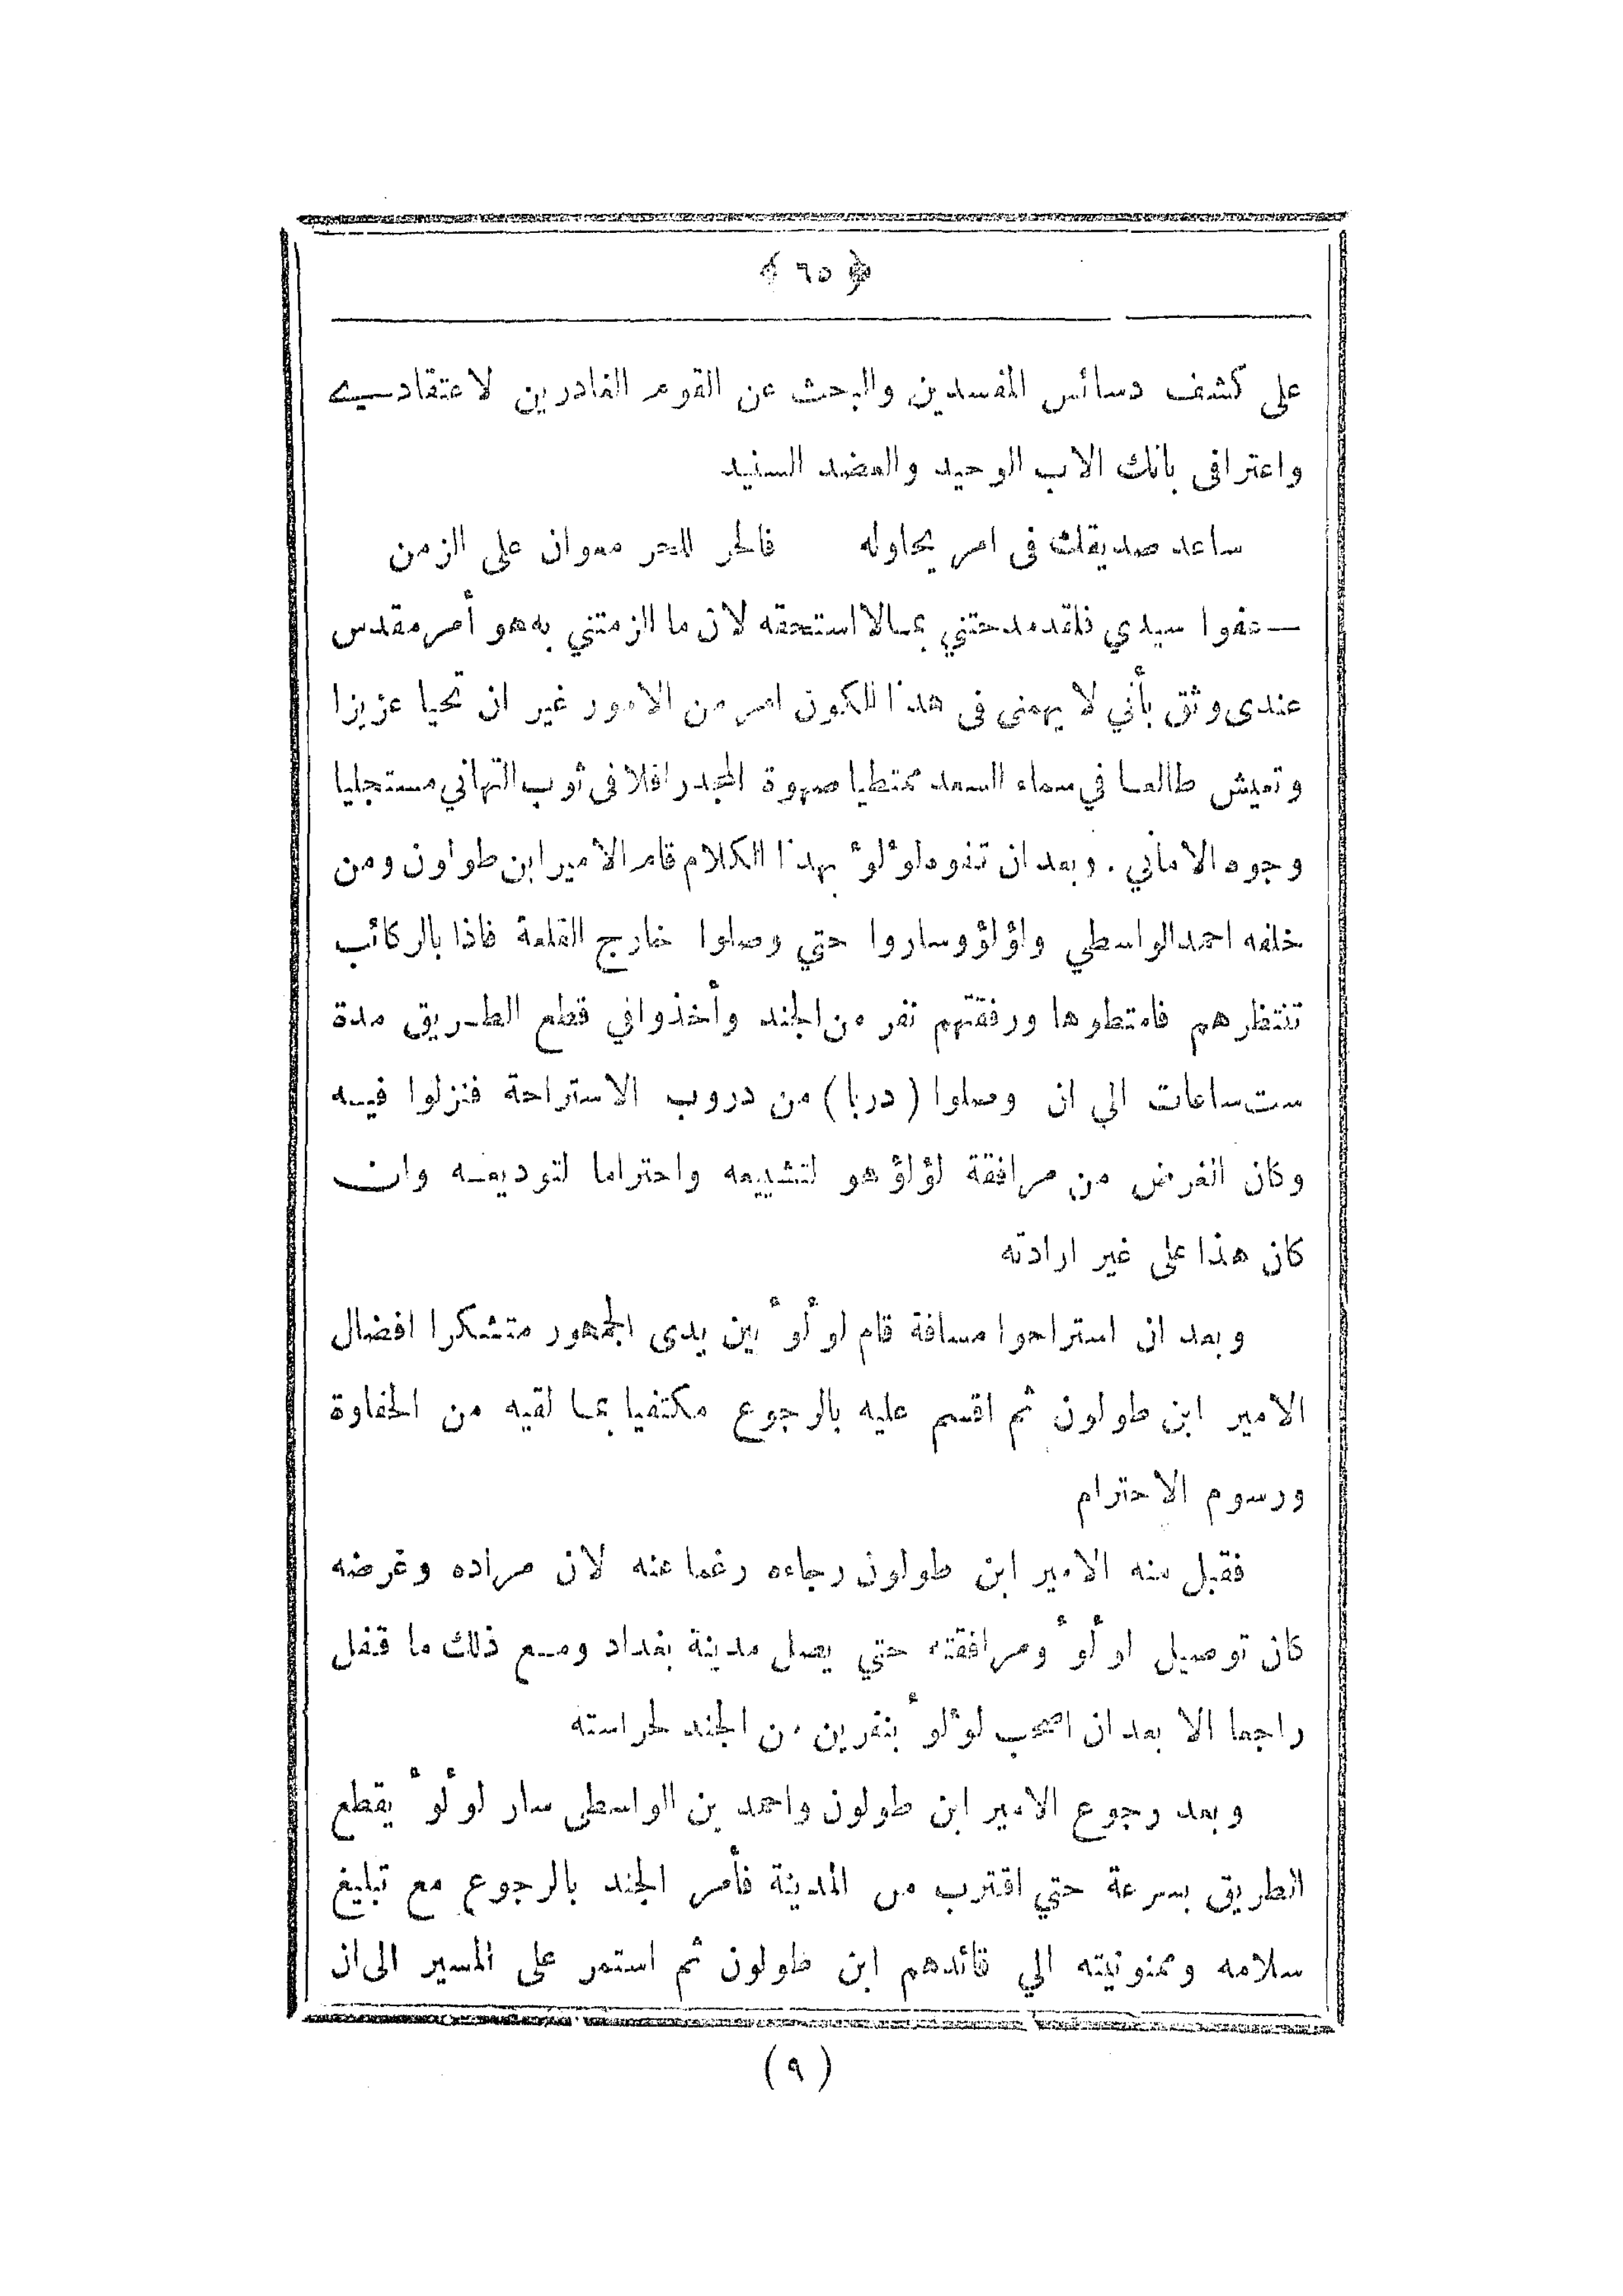 ﴿ ٦٥ ﴾
على كشف دسائس المفسدين والبحث عن القوم الغادرين لاعتقادي
واعترافى بانك الاب الوحيد والعضد السنيد
ساعد صديقك فى امر يحاوله فالحر للحر معوان على الزمن
— عفوا سيدي فلقد مدحتني بما لا استحقه لان ما الزمتني به هو أمر مقدس
عندى وثق بأني لا يهمنى فى هذا الكون امر من الامور غير ان تحيا عزيزا
وتعيش طالعا في سماء السعد ممتطيا صهوة المجد رافلا فى ثوب التهاني مستجليا
وجوه الاماني . وبعد ان تفوه لؤلؤ بهذا الكلام قام الامير ابن طولون ومن
خلفه احمد الواسطي ولؤلؤ وساروا حتي وصلوا خارج القلعة فاذا بالركائب
تنتظرهم فامتطوها ورفقتهم نفر من الجند وأخذوا في قطع الطريق مدة
ست ساعات الي ان وصلوا ( دربا ) من دروب الاستراحة فنزلوا فيه
وكان الغرض من مرافقة لؤلؤ هو لتشييعه واحتراما لتوديعه وان
كان هذا على غير ارادته
وبعد ان استراحوا مسافة قام لؤلؤ بين يدى الجمهور متشكرا افضال
الامير ابن طولون ثم اقسم عليه بالرجوع مكتفيا بما لقيه من الحفاوة
ورسوم الاحترام
فقبل منه الامير ابن طولون رجاءه رغما عنه لان مراده وغرضه
كان توصيل لؤلؤ ومرافقته حتي يصل مدينة بغداد ومع ذلك ما قفل
راجعا الا بعد ان اصحب لؤلؤ بنفرين من الجند لحراسته
وبعد رجوع الامير ابن طولون واحمد بن الواسطى سار لؤلؤ يقطع
الطريق بسرعة حتي اقترب من المدينة فأمر الجند بالرجوع مع تبليغ
سلامه وممنونيته الي قائدهم ابن طولون ثم استمر على المسير الى ان
( ٩ )